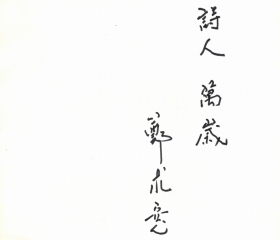 詩人 萬歲
鄭求亮